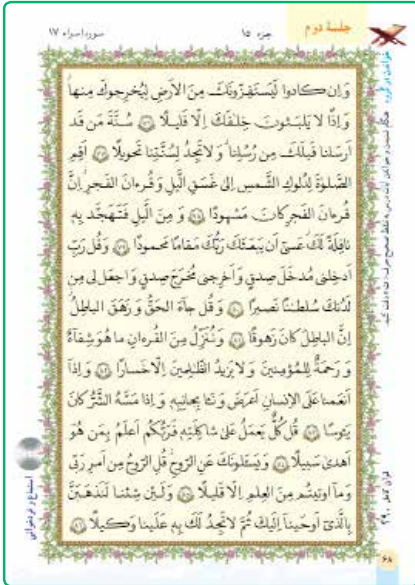 جلسهٔ دوم
جزء ١٥
سورهٔ اسراء ١٧
وَ اِن كادوا لَيَستَفِزّونَكَ مِنَ الاَرضِ لِيُخرِجوكَ مِنها
وَ اِذًا لا يَلبَثونَ خِلافَكَ اِلّا قَليلًا ٧٦ سُنَّةَ مَن قَد
اَرسَلنا قَبلَكَ مِن رُسُلِنا وَ لا تَجِدُ لِسُنَّتِنا تَحويلًا ٧٧ اَقِمِ
الصَّلوٰةَ لِدُلوكِ الشَّمسِ اِلىٰ غَسَقِ الَّيلِ وَ قُرءانَ الفَجرِ اِنَّ
قُرءانَ الفَجرِ كانَ مَشهودًا ٧٨ وَ مِنَ الَّيلِ فَتَهَجَّد بِه
نافِلَةً لَكَ عَسىٰ اَن يَبعَثَكَ رَبُّكَ مَقامًا مَحمودًا ٧٩ وَ قُل رَبِّ
اَدخِلنى مُدخَلَ صِدقٍ وَ اَخرِجنى مُخرَجَ صِدقٍ وَ اجعَل لى مِن
لَدُنكَ سُلطٰنًا نَصيرًا ٨٠ وَ قُل جاءَ الحَقُّ وَ زَهَقَ الباطِلُ
اِنَّ الباطِلَ كانَ زَهوقًا ٨١ وَ نُنَزِّلُ مِنَ القُرءانِ ما هُوَ شِفاءٌ
وَ رَحمَةٌ لِلمُؤمِنينَ وَ لا يَزيدُ الظّالِمينَ اِلّا خَسارًا ٨٢ وَ اِذا
اَنعَمنا عَلَى الاِنسانِ اَعرَضَ وَ نَئا بِجانِبِه وَ اِذا مَسَّهُ الشَّرُّ كانَ
يَئوسًا ٨٣ قُل كُلٌّ يَعمَلُ عَلىٰ شاكِلَتِه فَرَبُّكُم اَعلَمُ بِمَن هُوَ
اَهدىٰ سَبيلًا ٨٤ وَ يَسئَلونَكَ عَنِ الرّوحِ قُلِ الرّوحُ مِن اَمرِ رَبّى
وَ ما اوتيتُم مِنَ العِلمِ اِلّا قَليلًا ٨٥ وَ لَئِن شِئنا لَنَذهَبَنَّ
بِالَّذى اَوحَينا اِلَيكَ ثُمَّ لا تَجِدُ لَكَ بِه عَلَينا وَكيلًا ٨٦
خواندن در گروه
استماع و فردخوانی
قرآن کامل، ٢٩٠
۶۸